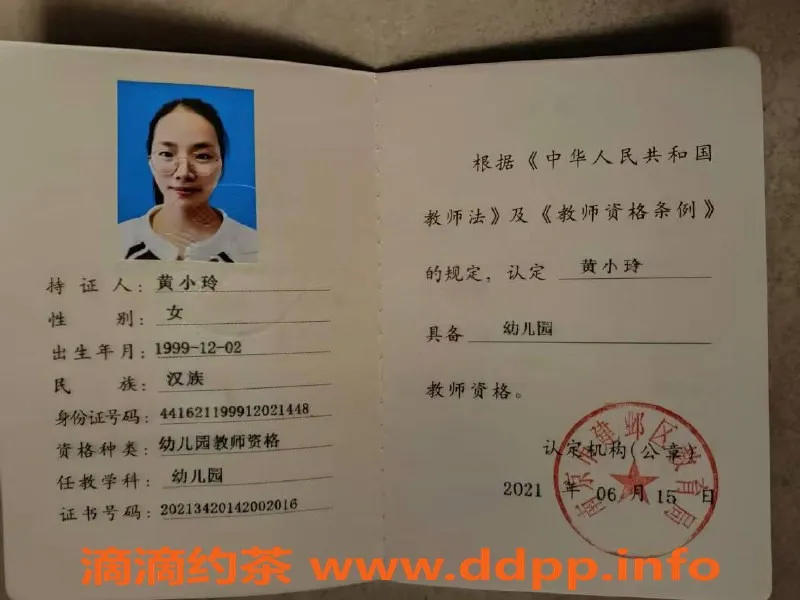 持 证 人：黄小玲
性 别：女
出生年月：1999-12-02
民 族：汉族
身份证号码：441621199912021448
资格种类：幼儿园教师资格
任教学科：幼儿园
证书号码：20213420142002016
根据《中华人民共和国
教师法》及《教师资格条例》
的规定，认定 黄小玲
具备 幼儿园
教师资格。
认定机构(公章)
2021 年 06 月 15 日
教育局
滴滴约茶 www.ddpp.info